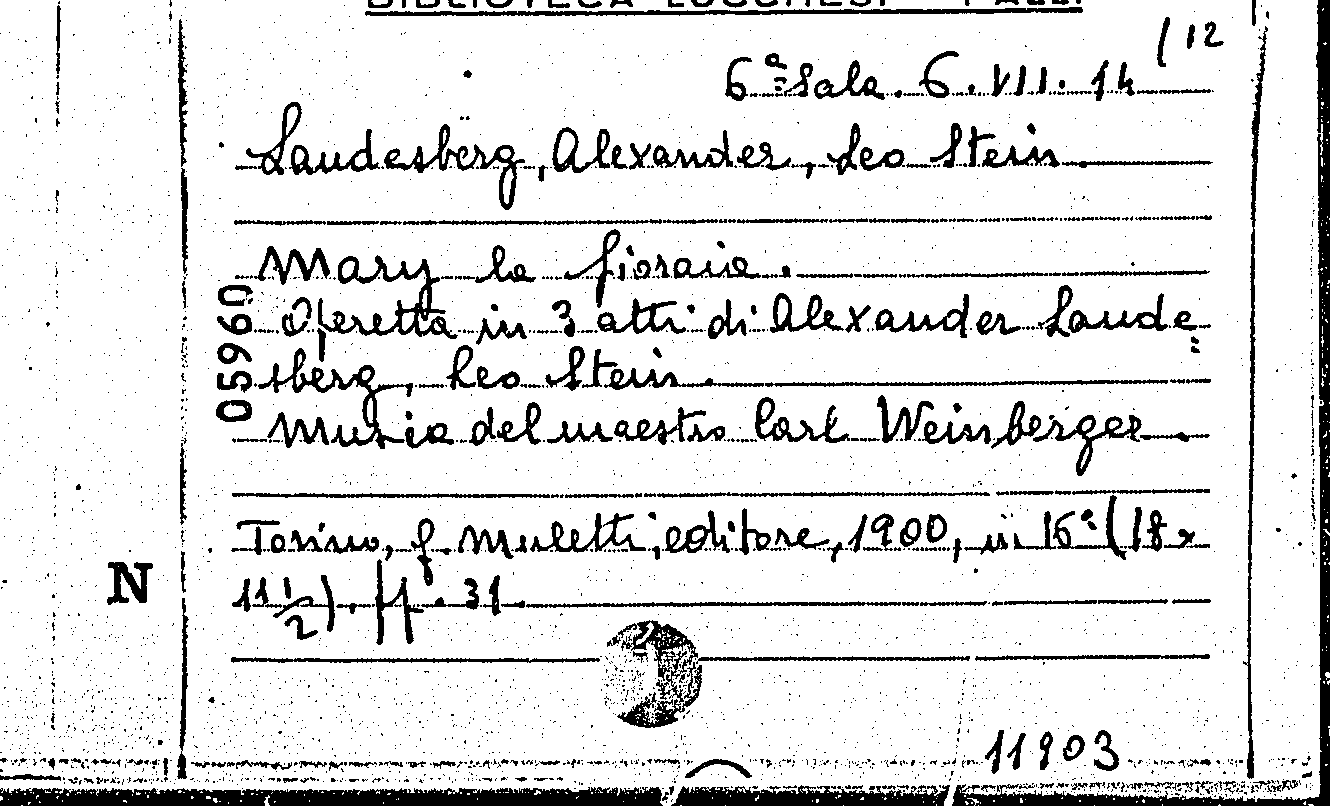 BIBLIOTECA LUCCHESI - PALLI
6ª Sala. 6. VII. 14 (12
Landesberg, Alexander, Leo Stein.
Mary la fioraia.
Operetta in 3 atti di Alexander Lande=
sberg, Leo Stein.
Musica del maestro Carl Weinberger.
Torino, f. Muletti, editore, 1900, in 16° (18 x
11 1/2). pp. 31.
05960
N
11903